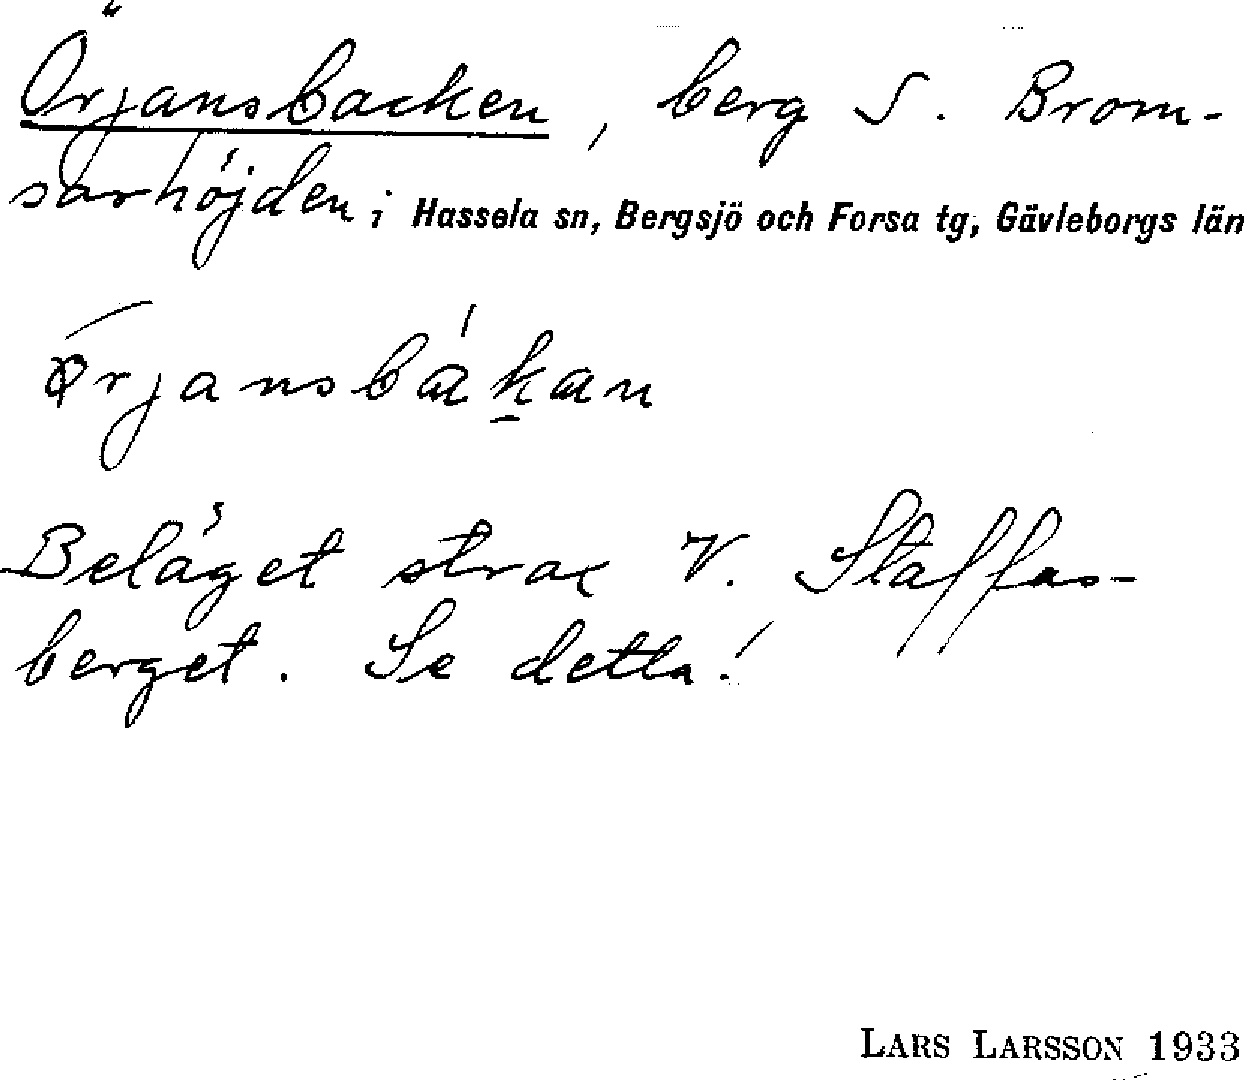 Örjansbacken, berg S. Brom-
sarhöjden i Hassela sn, Bergsjö och Forsa tg, Gävleborgs län
Beläget strax V. Staffas-
berget. Se detta!
LARS LARSSON 1933